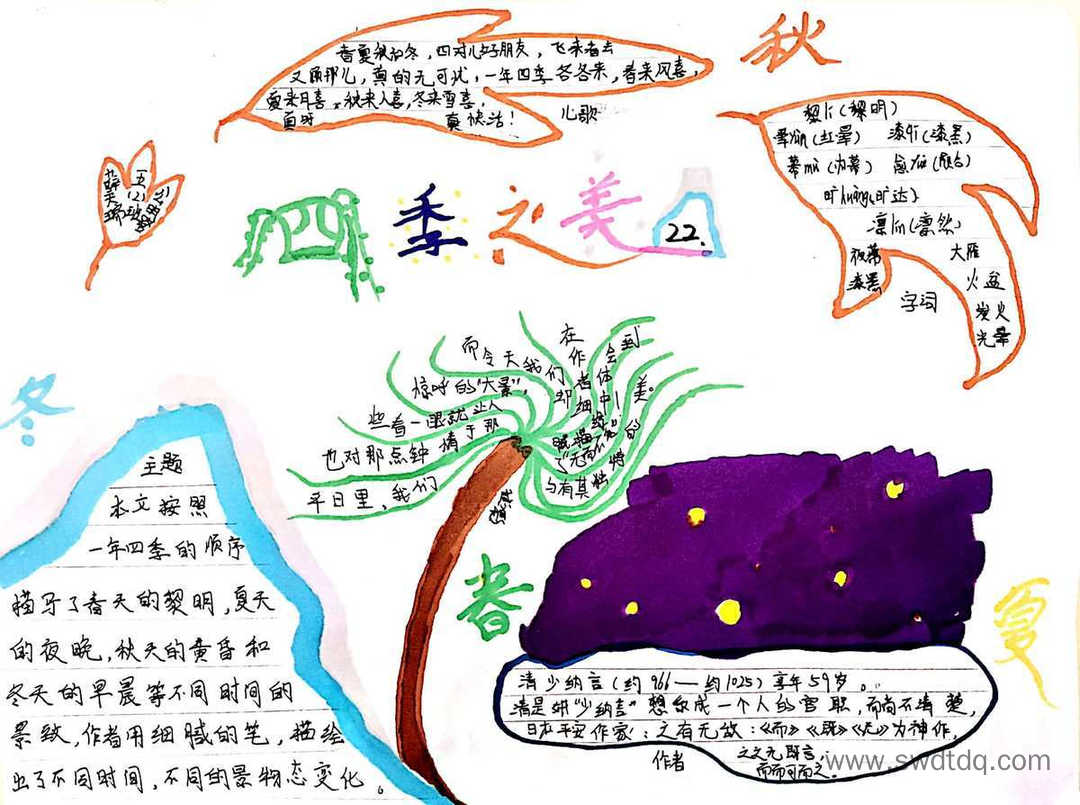 秋
春夏秋和冬，四对儿好朋友，飞来春去
又
真的无可比，一年四季冬冬来，春来风喜，
夏来月喜，秋来人喜，冬来雪喜，
真好
真快活！
儿歌
黎lí(黎明)
晕yùn(红晕) 漆qī(漆黑)
幕mù(内幕)
旷kuàng(旷达)
凛lǐn(凛然)
夜幕
漆黑
大雁
火盆
炭火
光晕
字词
五
(2)
四季之美
22.
冬
主题
本文按照
一年四季的顺序
描写了春天的黎明，夏天
的夜晚，秋天的黄昏和
冬天的早晨等不同时间的
景致，作者用细腻的笔，描绘
出了不同时间，不同的景物态变化。
平日里，我们
也对那点钟情于那
些看一眼就让人
惊呼的“大景”，
而今天我们
在作者
却
细中
会到
体
美。
与有其独特
的
春
夏
清少纳言(约966——约1025)享年59岁。
清是姓“少纳言”
成一个人的官职，而尚不清楚，
日本平安作家：之有无故：《而》《既》《尤》为神作，
之之无即言，
而而可而之。
作者
www.swdtdq.com